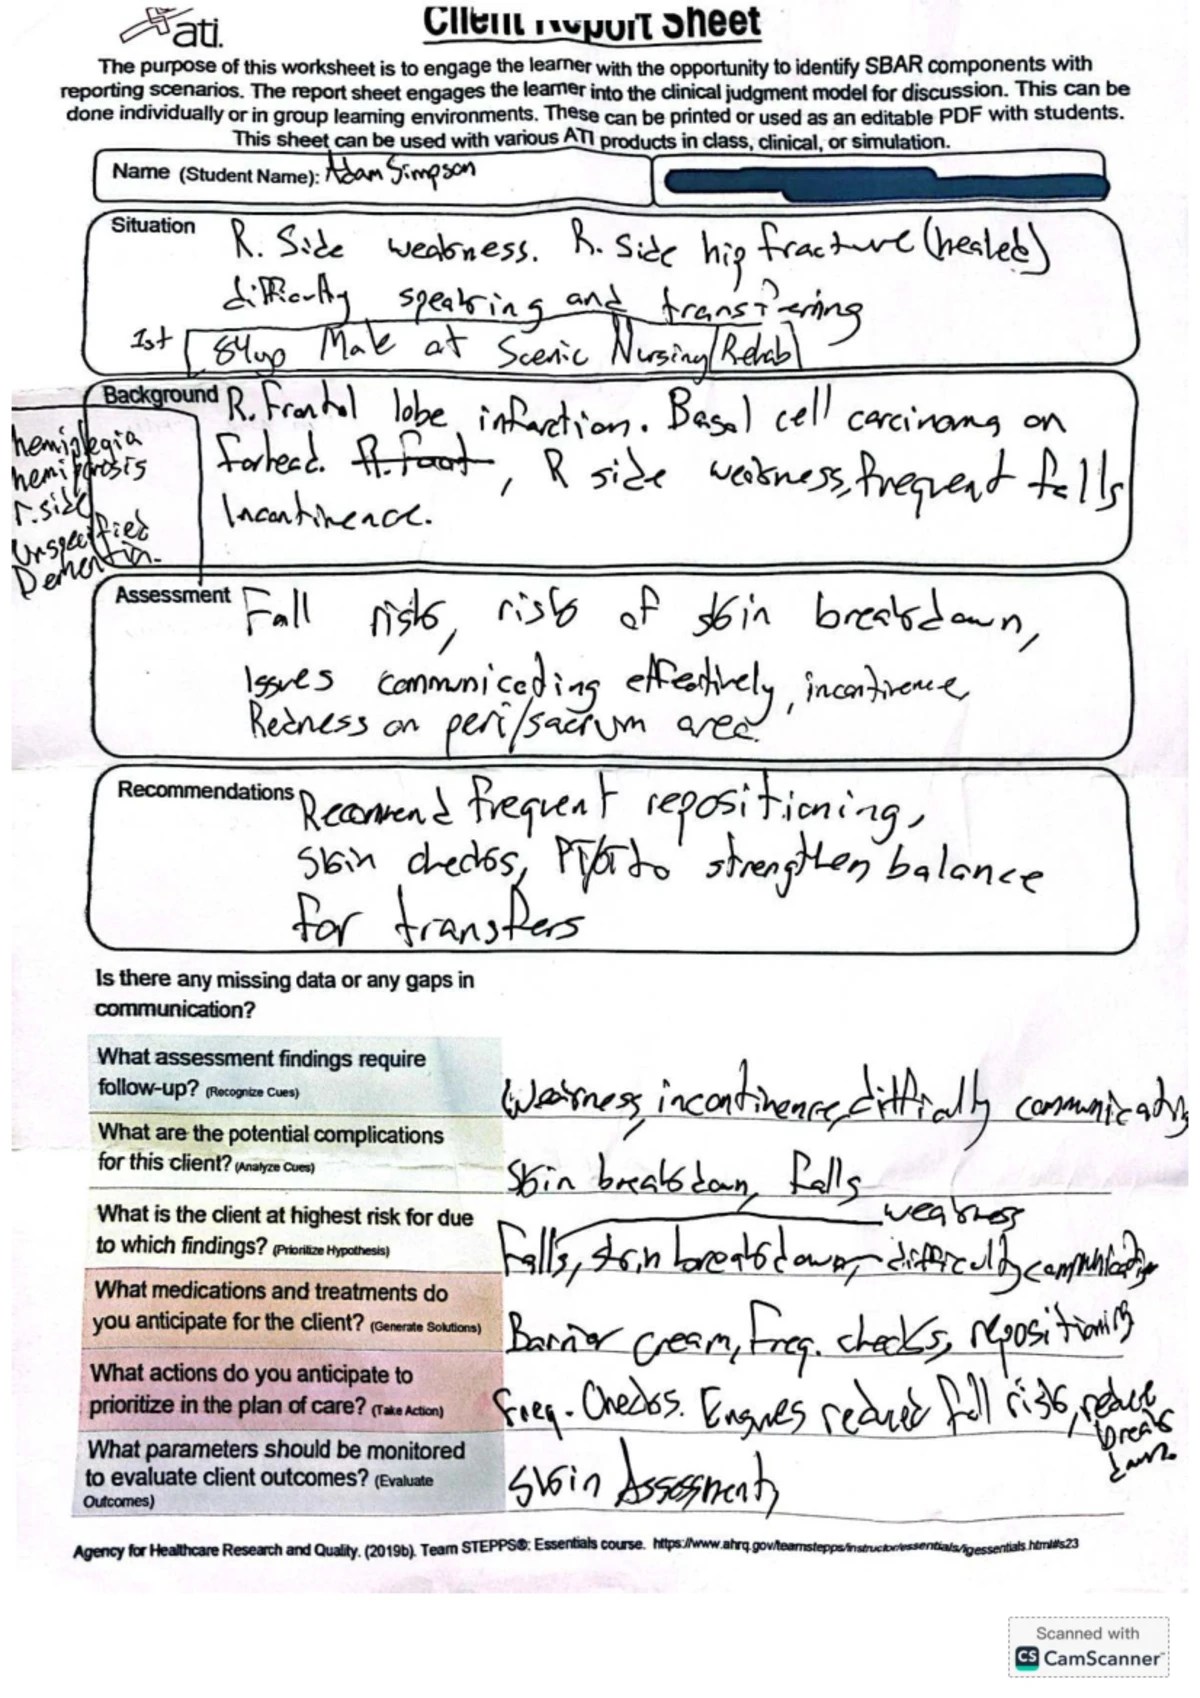 ati.
Client Report Sheet
The purpose of this worksheet is to engage the learner with the opportunity to identify SBAR components with
reporting scenarios. The report sheet engages the learner into the clinical judgment model for discussion. This can be
done individually or in group learning environments. These can be printed or used as an editable PDF with students.
This sheet can be used with various ATI products in class, clinical, or simulation.
Name (Student Name): Adam Simpson
Situation
R. Side weakness. R. Side hip fracture (healed)
difficulty speaking and transfering
1st 84yo Male at Scenic Nursing/Rehab
Background
R. Frontal lobe infarction. Basal cell carcinoma on
forhead. R. Foot, R side weakness, frequent falls
Incontinence.
hemiplegia
hemiparosis
r. side
Unspecified
Dementia.
Assessment
Fall risk, risk of skin breakdown,
Issues communicating effectively, incontinence
Redness on peri/sacrum area.
Recommendations
Recommend frequent repositioning,
Skin checks, PT/OT to strengthen balance
for transfers
Is there any missing data or any gaps in
communication?
What assessment findings require
follow-up? (Recognize Cues)
Weakness, incontinence, difficulty communicating
What are the potential complications
for this client? (Analyze Cues)
Skin breakdown, falls
What is the client at highest risk for due
to which findings? (Prioritize Hypothesis)
weakness
Falls, skin breakdown, difficulty communicating
What medications and treatments do
you anticipate for the client? (Generate Solutions)
Barrier cream, Freq. checks, repositioning
What actions do you anticipate to
prioritize in the plan of care? (Take Action)
Freq. Checks. Ensures reduced fall risk, reduce
break
down.
What parameters should be monitored
to evaluate client outcomes? (Evaluate
Outcomes)
Skin Assessment,
Agency for Healthcare Research and Quality. (2019b). Team STEPPS®: Essentials course. https://www.ahrq.gov/teamstepps/instructor/essentials/igessentials.html#s23
Scanned with
CS CamScanner